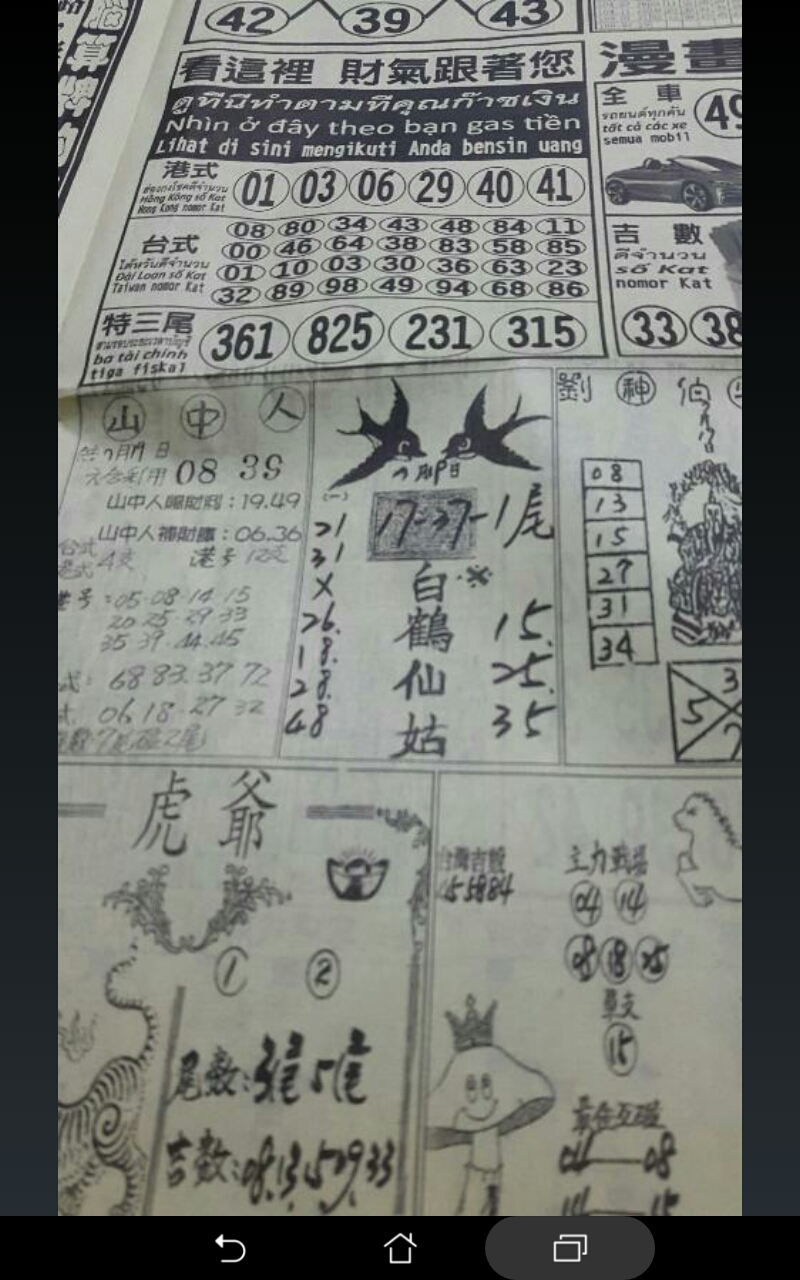 42 39 43
看這裡 財氣跟著您
ดูที่นี่ทำตามที่คุณก๊าซเงิน
Nhìn ở đây theo bạn gas tiền
Lihat di sini mengikuti Anda bensin uang
港式
Hồng Kông số Kat
Hong Kong nomor Kat
01 03 06 29 40 41
台式
ไต้หวันดีจำนวน
Đài Loan số Kat
Taiwan nomor Kat
08 80 34 43 48 84 11
00 46 64 38 83 58 85
01 10 03 30 36 63 23
32 89 98 49 94 68 86
特三尾
ba tài chính
tiga fiskal
361 825 231 315
漫畫
全車
รถยนต์ทุกคัน
tất cả các xe
semua mobil
49
吉數
ดีจำนวน
số Kat
nomor Kat
33 38
山中人
08 39
山中人賜財到:19.49
山中人補財庫:06.36
台式
4支 港号 12支
港号:05·08·14·15
20·25·29·33
35·39·44·45
68 83.37 72
06.18·27 32
(一)
21
31
X
26.
18.
28.
48
17-37-1尾
白鶴仙姑
15.
25.
35
劉神伯
08
13
15
27
31
34
5
虎爺
① ②
尾數:3尾 5尾
吉數:08.13.509.33
台灣吉號
主力戰場
04 14
08 18 25
單支
15
04—08